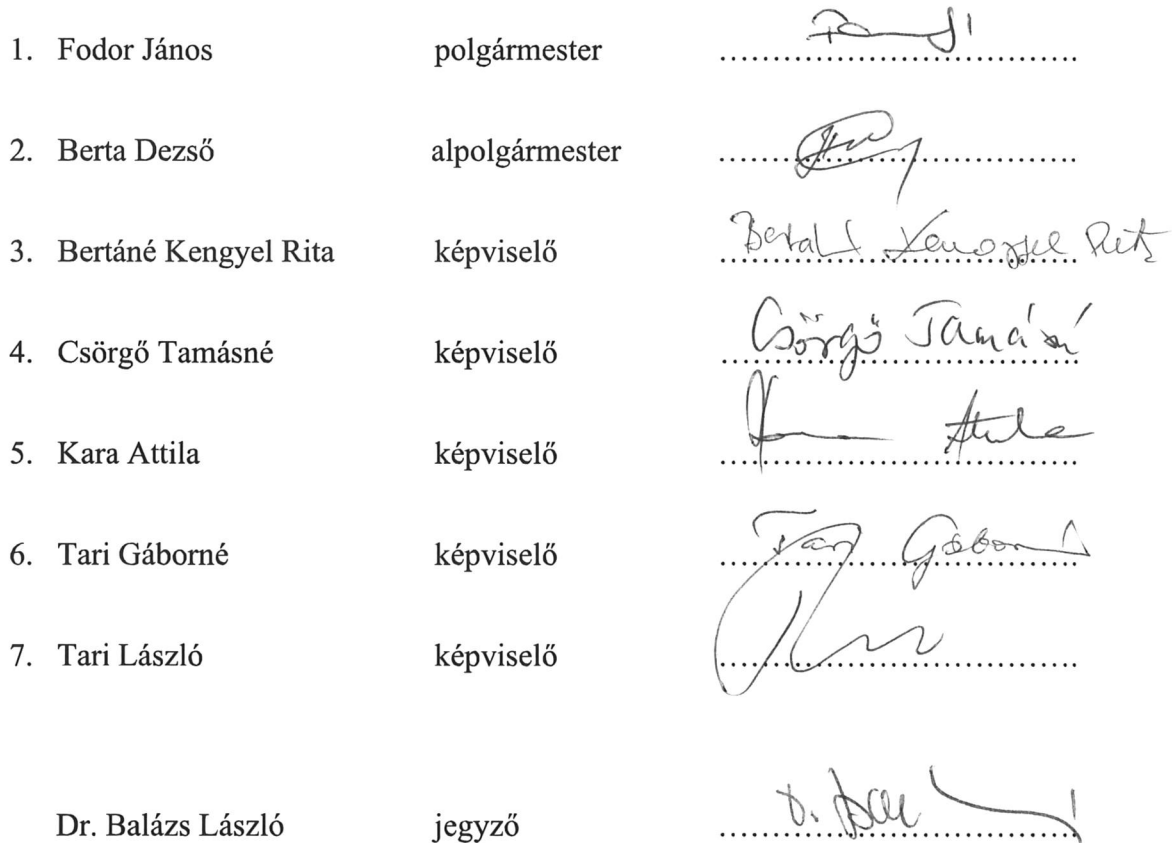 1. Fodor János polgármester
2. Berta Dezső alpolgármester
3. Bertáné Kengyel Rita képviselő
4. Csörgő Tamásné képviselő Csörgő Tamásné
5. Kara Attila képviselő Attila
6. Tari Gáborné képviselő Gáborné
7. Tari László képviselő
Dr. Balázs László jegyző